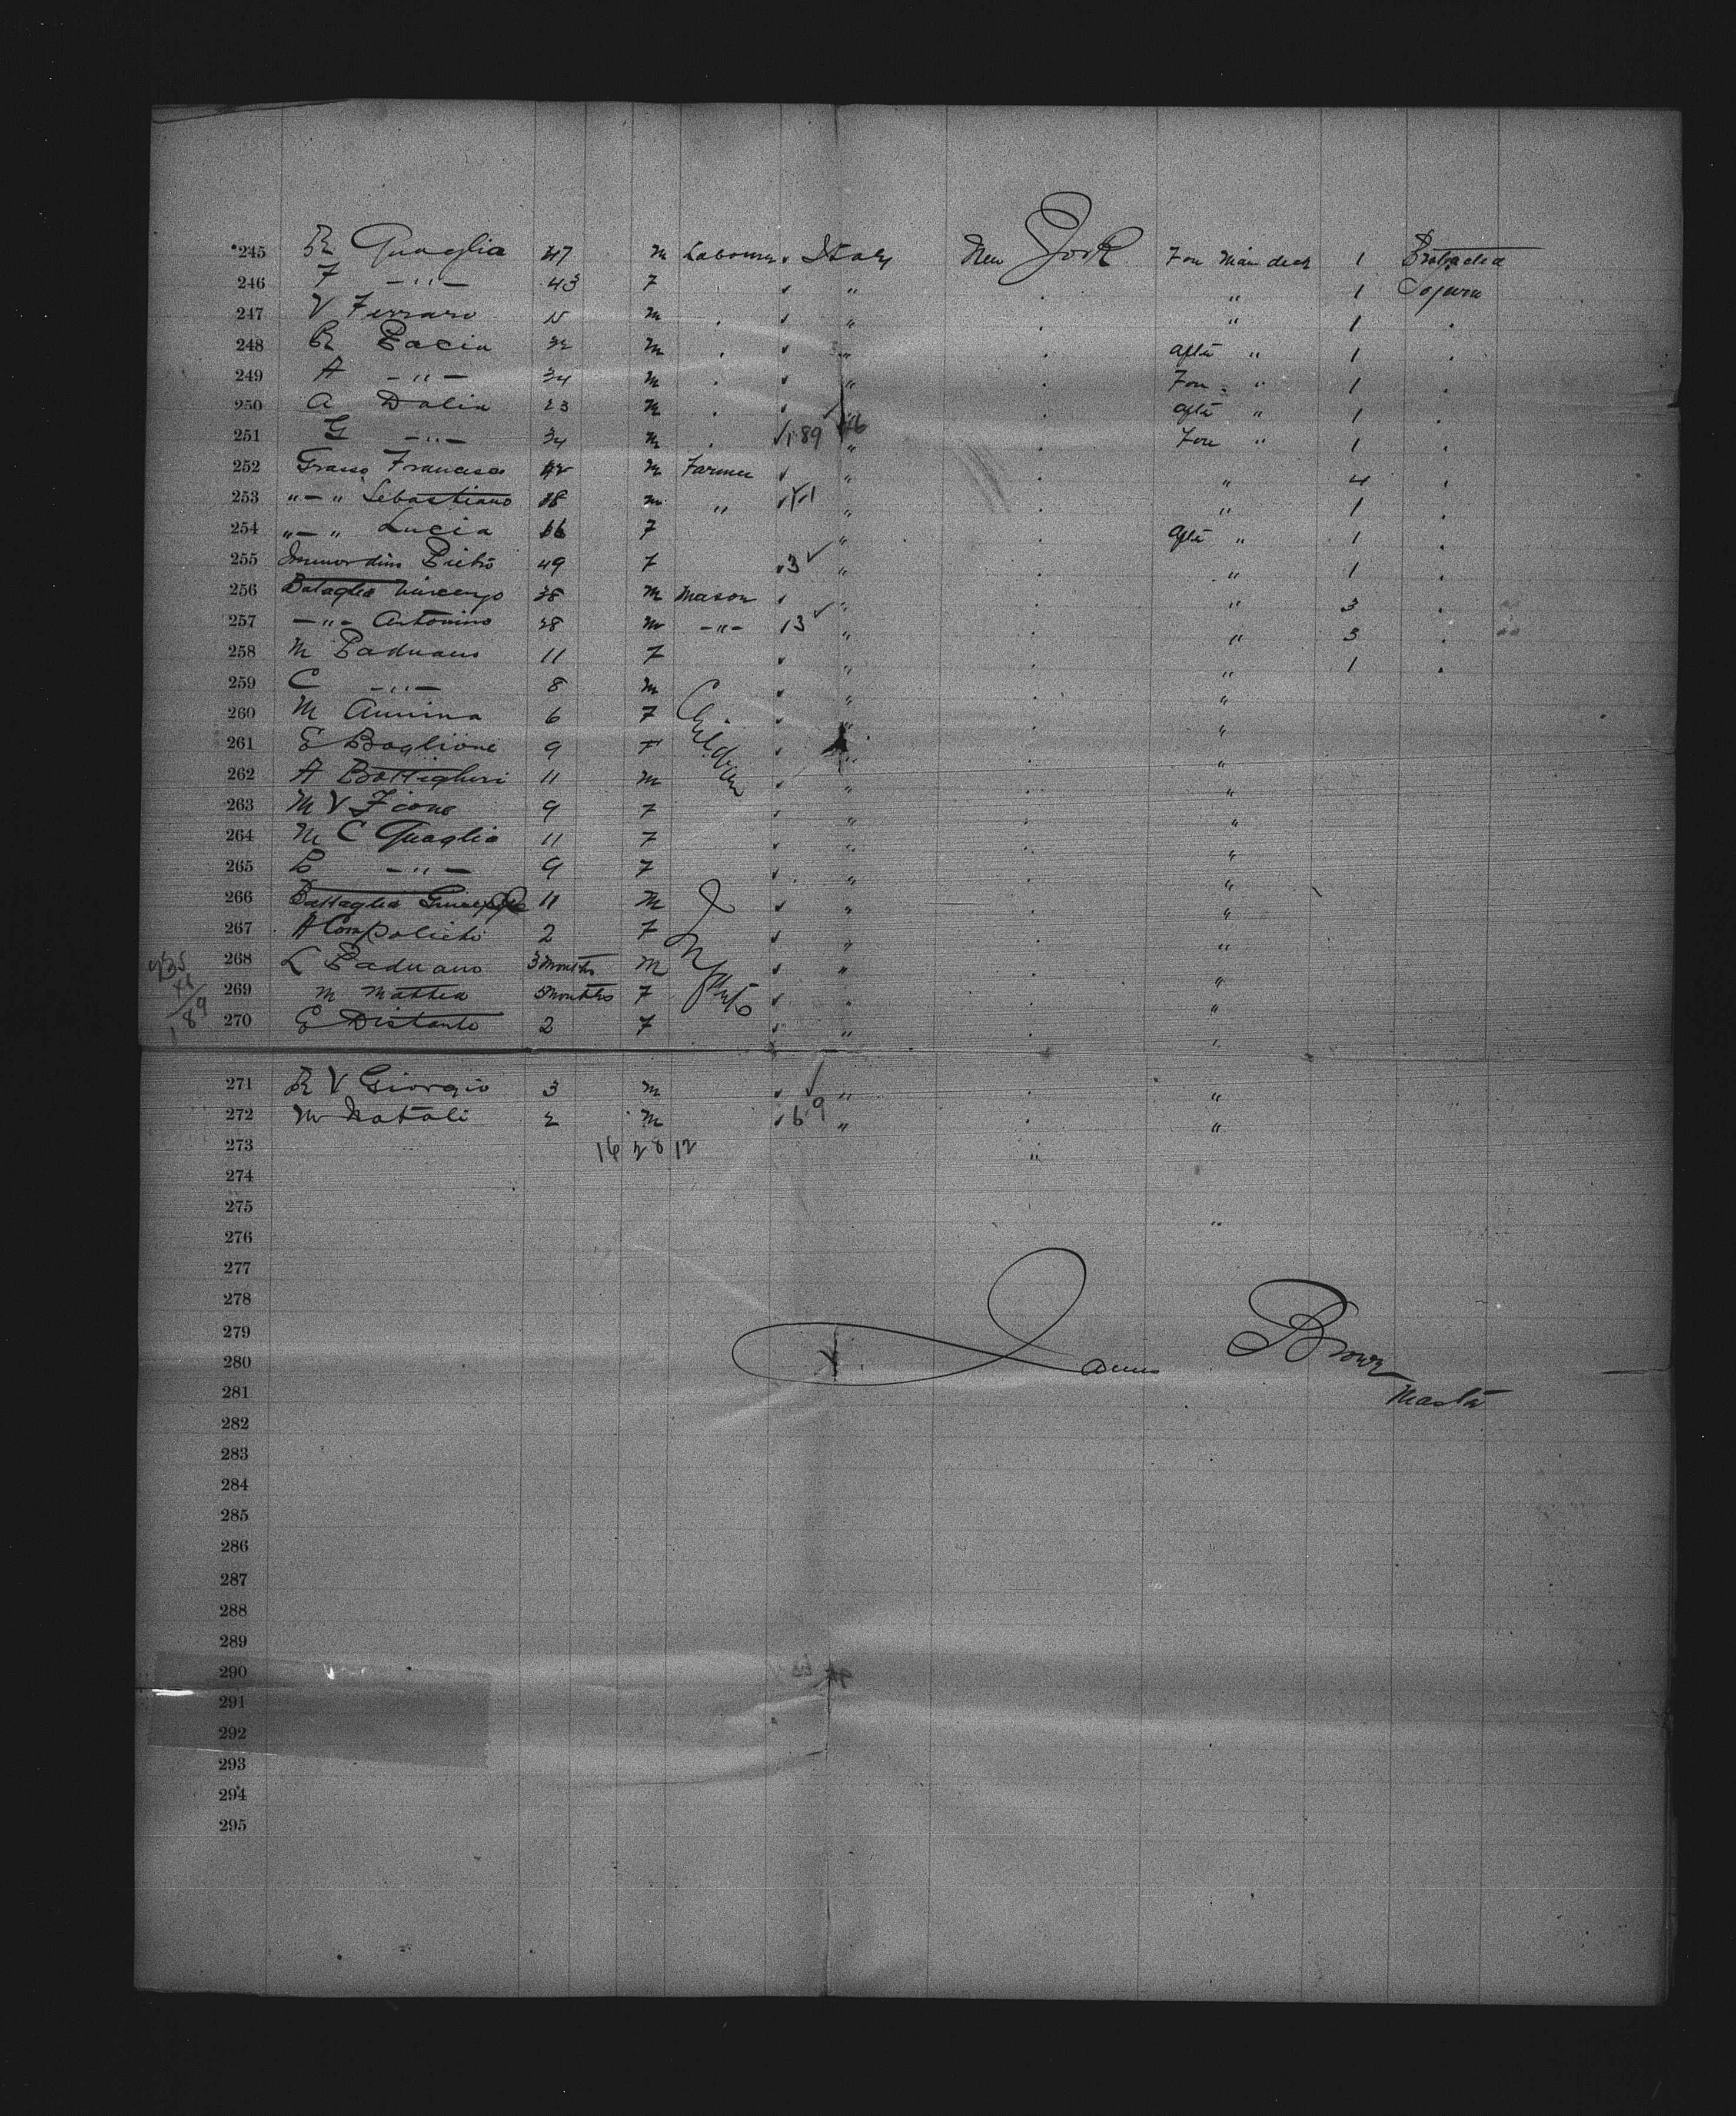 245 R Quaglia 47 m Labourer Italy New York Fore Main deck 1 Protracted
246 F —"— 43 F " " 1 Sojourn
247 V Ferraro m " " 1
248 R Pacia 32 m " after " 1
249 A —"— 34 m " Fore " 1
250 A Dalia 23 m " after " 1
251 G —"— 34 m 189 " Fore " 1
252 Grasso Francesco 42 m Farmer " " 4
253 "—" Sebastiano 18 m " " " 1
254 "—" Lucia 16 F " after " 1
255 Pietro 49 F 3 " " 1
256 Bataglia Vincenzo 38 m Mason " " 3
257 —"— Antonino 28 m —"— 13 " " 3
258 M Paduano 11 F " " 1
259 C —"— 8 m " "
260 M Annina 6 F Children " "
261 E Baglione 9 F " "
262 A Bottiglieri 11 m " "
263 M V Fione 9 F " "
264 M C Quaglia 11 F " "
265 P —"— 9 F " "
266 Battaglia Giuseppe 11 M " "
267 A Compolieti 2 F " "
268 L Paduano 3 Months M Infants " "
269 M Mattea 5 Months F " "
270 E Distanto 2 F " "
271 R V Giorgio 3 m " "
272 M Natali 2 m 69 " "
273 16 28 12 "
274
275
276 "
277
278
279
280 James Brown
281 Master
282
283
284
285
286
287
288
289
290
291
292
293
294
295